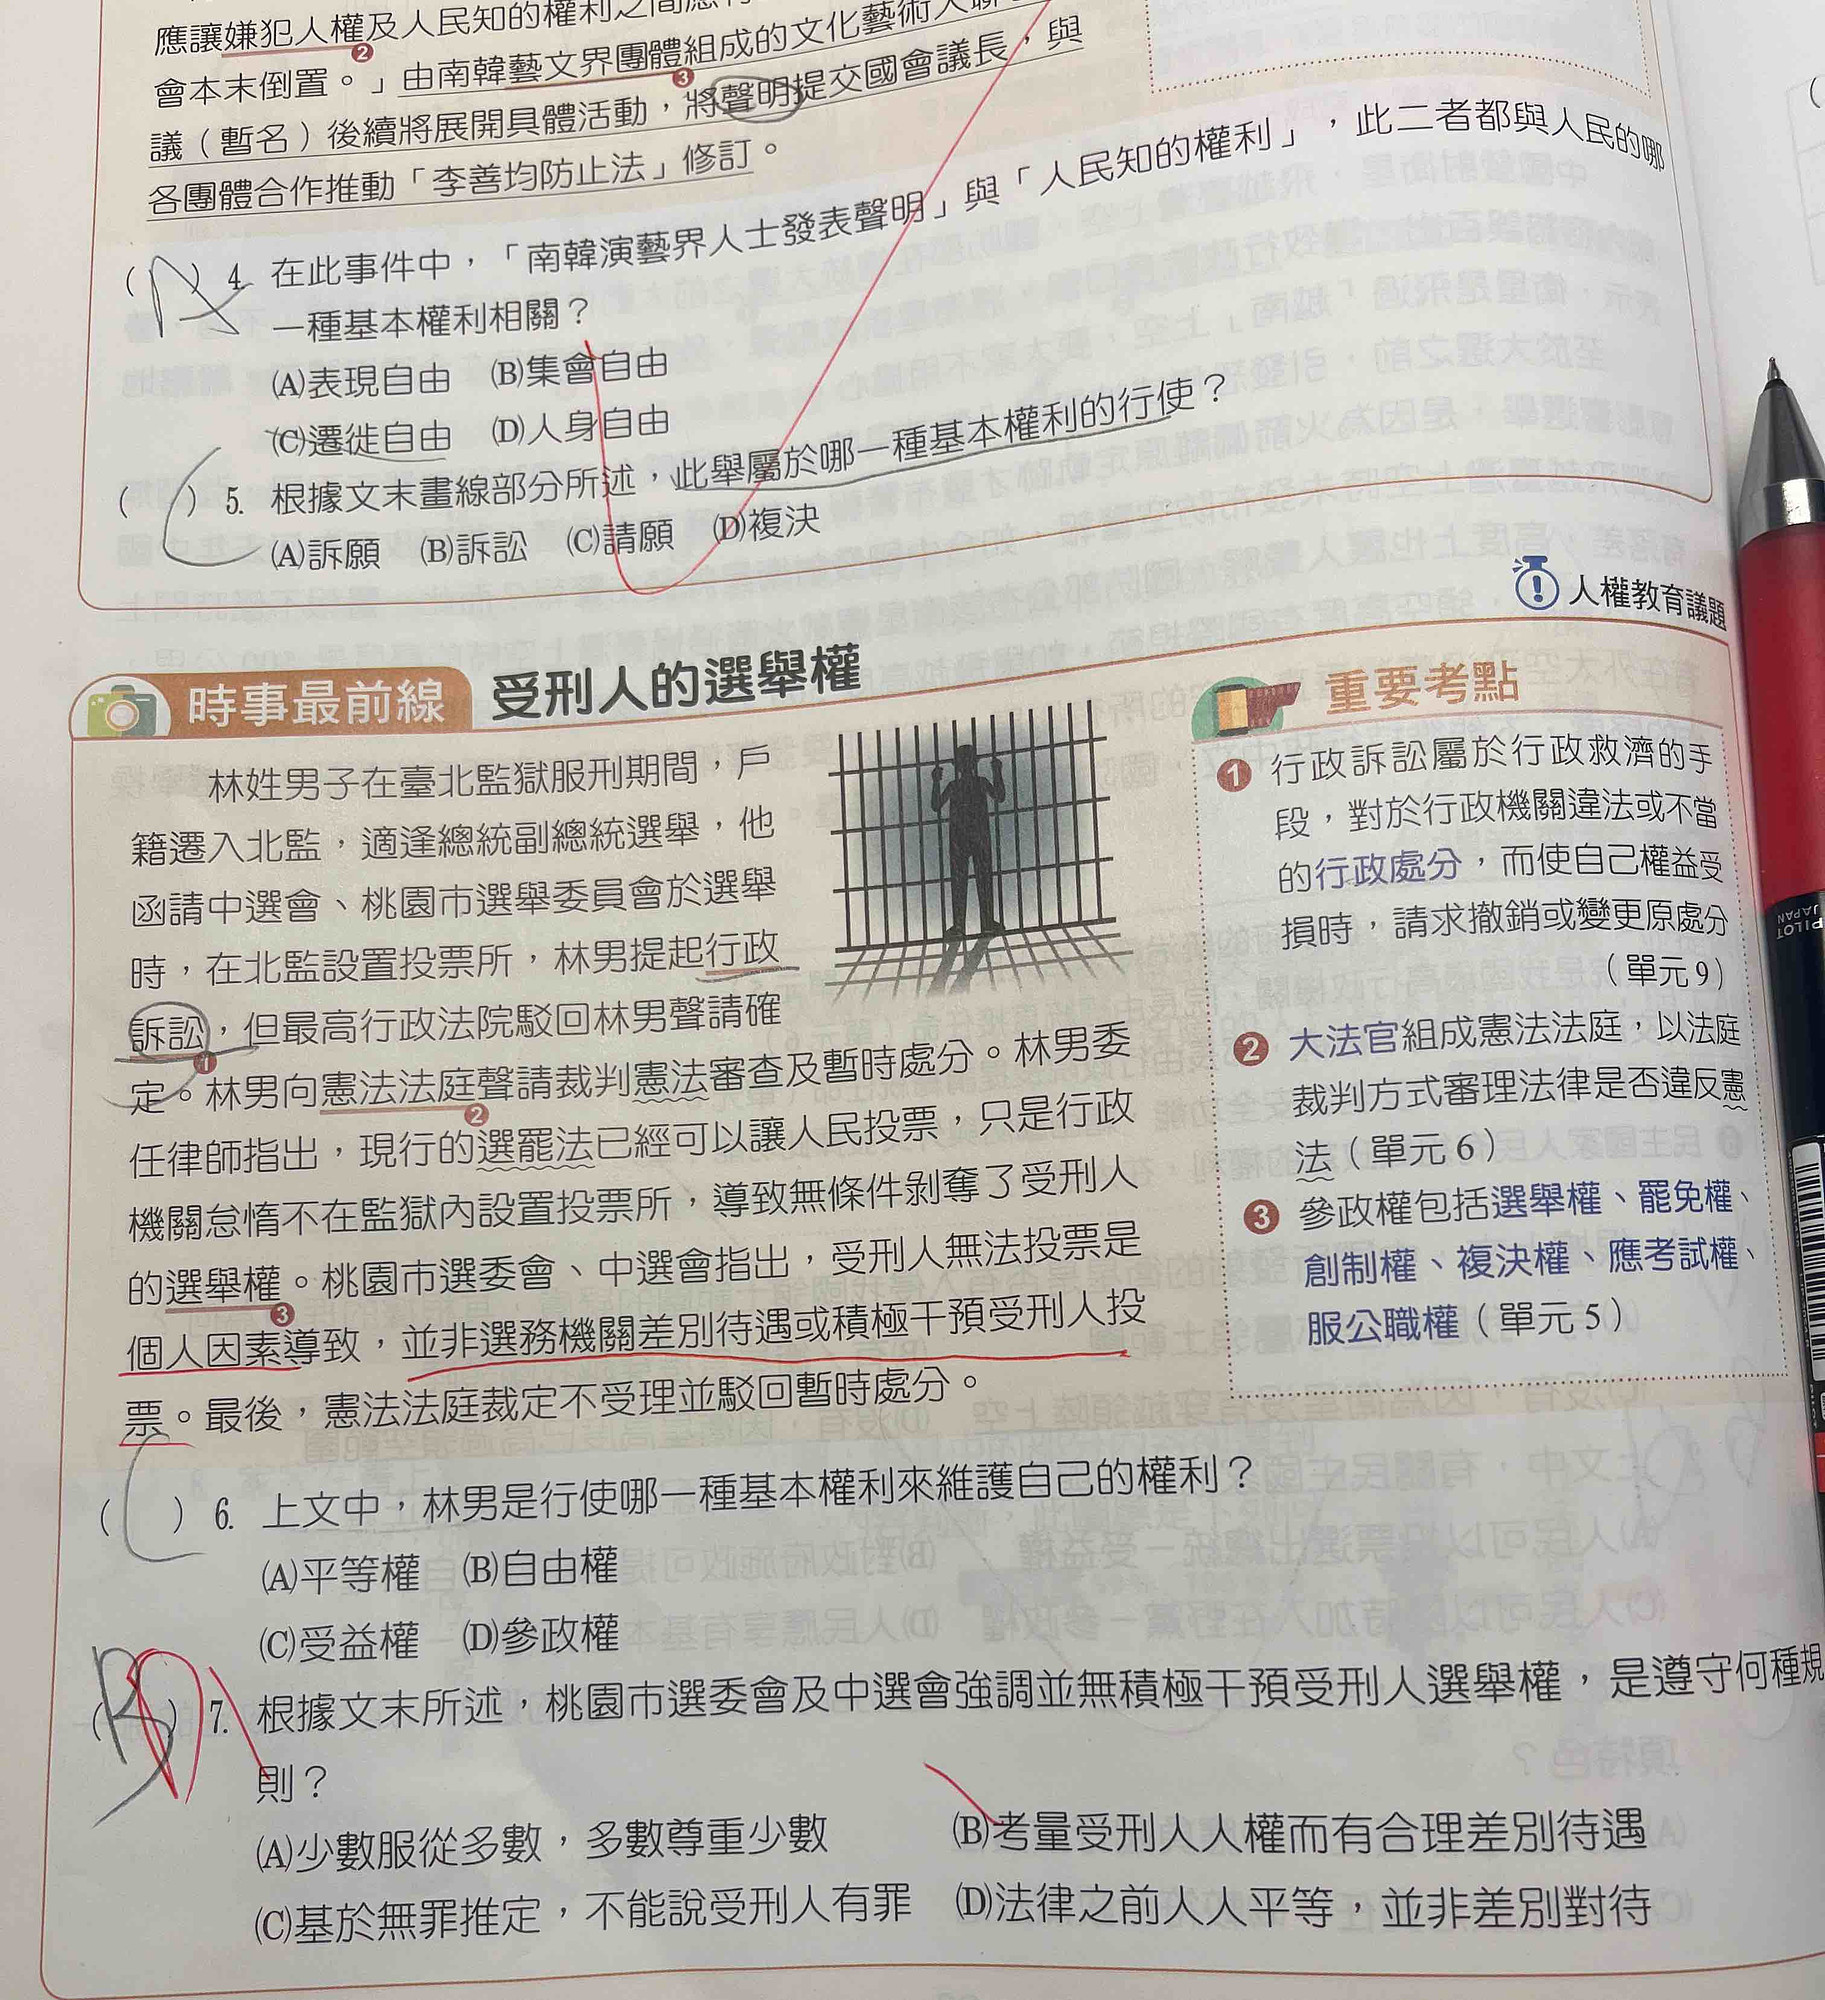 應讓嫌犯人權及人民知的權利之間
會本末倒置。」由南韓藝文界團體組成的文化藝術人聯
議（暫名）後續將展開具體活動，將聲明提交國會議長，與
各團體合作推動「李善均防止法」修訂。
( ) 4. 在此事件中，「南韓演藝界人士發表聲明」與「人民知的權利」，此二者都與人民的哪
一種基本權利相關？
(A)表現自由 (B)集會自由
(C)遷徙自由 (D)人身自由
( C ) 5. 根據文末畫線部分所述，此舉屬於哪一種基本權利的行使？
(A)訴願 (B)訴訟 (C)請願 (D)複決
人權教育議題
時事最前線 受刑人的選舉權
林姓男子在臺北監獄服刑期間，戶
籍遷入北監，適逢總統副總統選舉，他
函請中選會、桃園市選舉委員會於選舉
時，在北監設置投票所，林男提起行政
訴訟，但最高行政法院駁回林男聲請確
❶
定。林男向憲法法庭聲請裁判憲法審查及暫時處分。林男委
❷
任律師指出，現行的選罷法已經可以讓人民投票，只是行政
機關怠惰不在監獄內設置投票所，導致無條件剝奪了受刑人
的選舉權。桃園市選委會、中選會指出，受刑人無法投票是
❸
個人因素導致，並非選務機關差別待遇或積極干預受刑人投
票。最後，憲法法庭裁定不受理並駁回暫時處分。
重要考點
❶ 行政訴訟屬於行政救濟的手
段，對於行政機關違法或不當
的行政處分，而使自己權益受
損時，請求撤銷或變更原處分
（單元 9）
❷ 大法官組成憲法法庭，以法庭
裁判方式審理法律是否違反憲
法（單元 6）
❸ 參政權包括選舉權、罷免權、
創制權、複決權、應考試權、
服公職權（單元 5）
( C ) 6. 上文中，林男是行使哪一種基本權利來維護自己的權利？
(A)平等權 (B)自由權
(C)受益權 (D)參政權
( B D ) 7. 根據文末所述，桃園市選委會及中選會強調並無積極干預受刑人選舉權，是遵守何種規
則？
(A)少數服從多數，多數尊重少數 (B)考量受刑人人權而有合理差別待遇
(C)基於無罪推定，不能說受刑人有罪 (D)法律之前人人平等，並非差別對待
PILOT
JAPAN